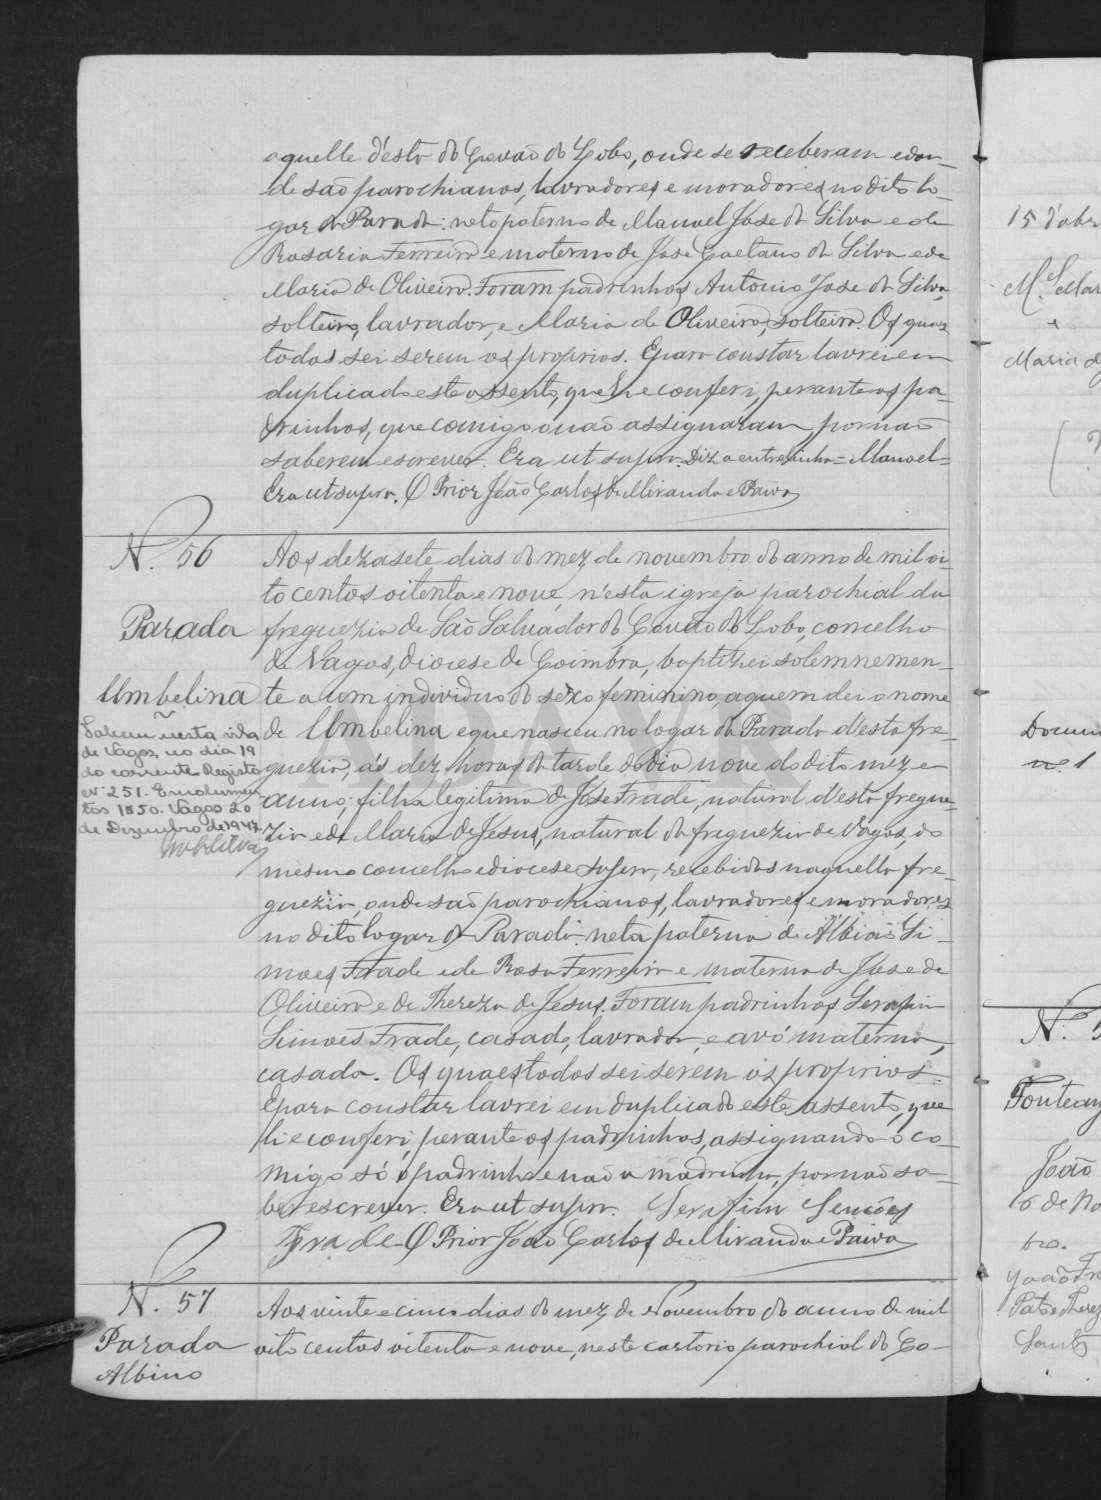 aquelle d'esta do Covão do Lobo, onde se receberam e don-
de são parochianos, lavradores e moradores no dito lo-
gar da Parada: neto paterno de Manoel José da Silva e de
Rosaria Ferreira e materno de José Caetano da Silva e de
Maria de Oliveira. Foram padrinhos Antonio José da Silva,
solteiro, lavrador, e Maria de Oliveira, solteira. Os quaes
todos sei serem os proprios. E para constar lavrei em
duplicado este assento, que li e conferi, perante os pa-
drinhos, que comigo não assignaram, por não
saberem escrever. Era ut supra. Diz a entrelinha = Manoel =
Era ut supra. O Prior João Carlos de Miranda e Paiva
N. 56
Parada
Umbelina
Faleceu nesta vila
de Vagos, no dia 19
do corrente. Registo
nº 251. Emolumen
tos 1$50. Vagos 20
de Dezembro de 1947
Aos dezasete dias do mez de novembro do anno de mil oi-
to centos oitenta e nove, n'esta igreja parochial da
freguezia de São Salvador do Covão do Lobo, concelho
de Vagos, diocese de Coimbra, baptizei solemnemen-
te a um individuo do sexo feminino, a quem dei o nome
de Umbelina e que nasceu no logar da Parada d'esta fre-
guezia, ás dez horas da tarde do dia nove do dito mez e
anno, filha legitima de José Frade, natural d'esta fregue-
zia e de Maria de Jesus, natural da freguezia de Vagos, do
mesmo concelho e diocese supra, recebidos naquella fre-
guezia, onde são parochianos, lavradores e moradores
no dito logar da Parada: neta paterna de Albino Si-
mões Frade e de Rosa Ferreira e materna de José de
Oliveira e de Thereza de Jesus. Foram padrinhos Serafim
Simões Frade, casado, lavrador, e avó materna,
casada. Os quaes todos sei serem os proprios.
E para constar lavrei em duplicado este assento, que
li e conferi, perante os padrinhos, assignando o co-
migo só o padrinho e não a madrinha, por não sa-
ber escrever. Era ut supra. Serafim Simões
Frade O Prior João Carlos de Miranda e Paiva
N. 57
Parada
Albino
Aos vinte e cinco dias do mez de Novembro do anno de mil
oito centos oitenta e nove, neste cartorio parochial do Co-
15 d'abr
Maria d
Docum
nº. 1
N. 5
João
6 de No
bro.
ADAVR